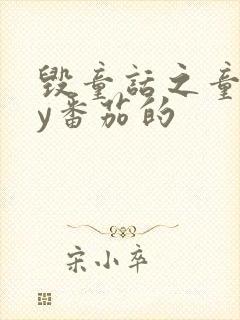 毁童话之童
y番茄的
宋小卒